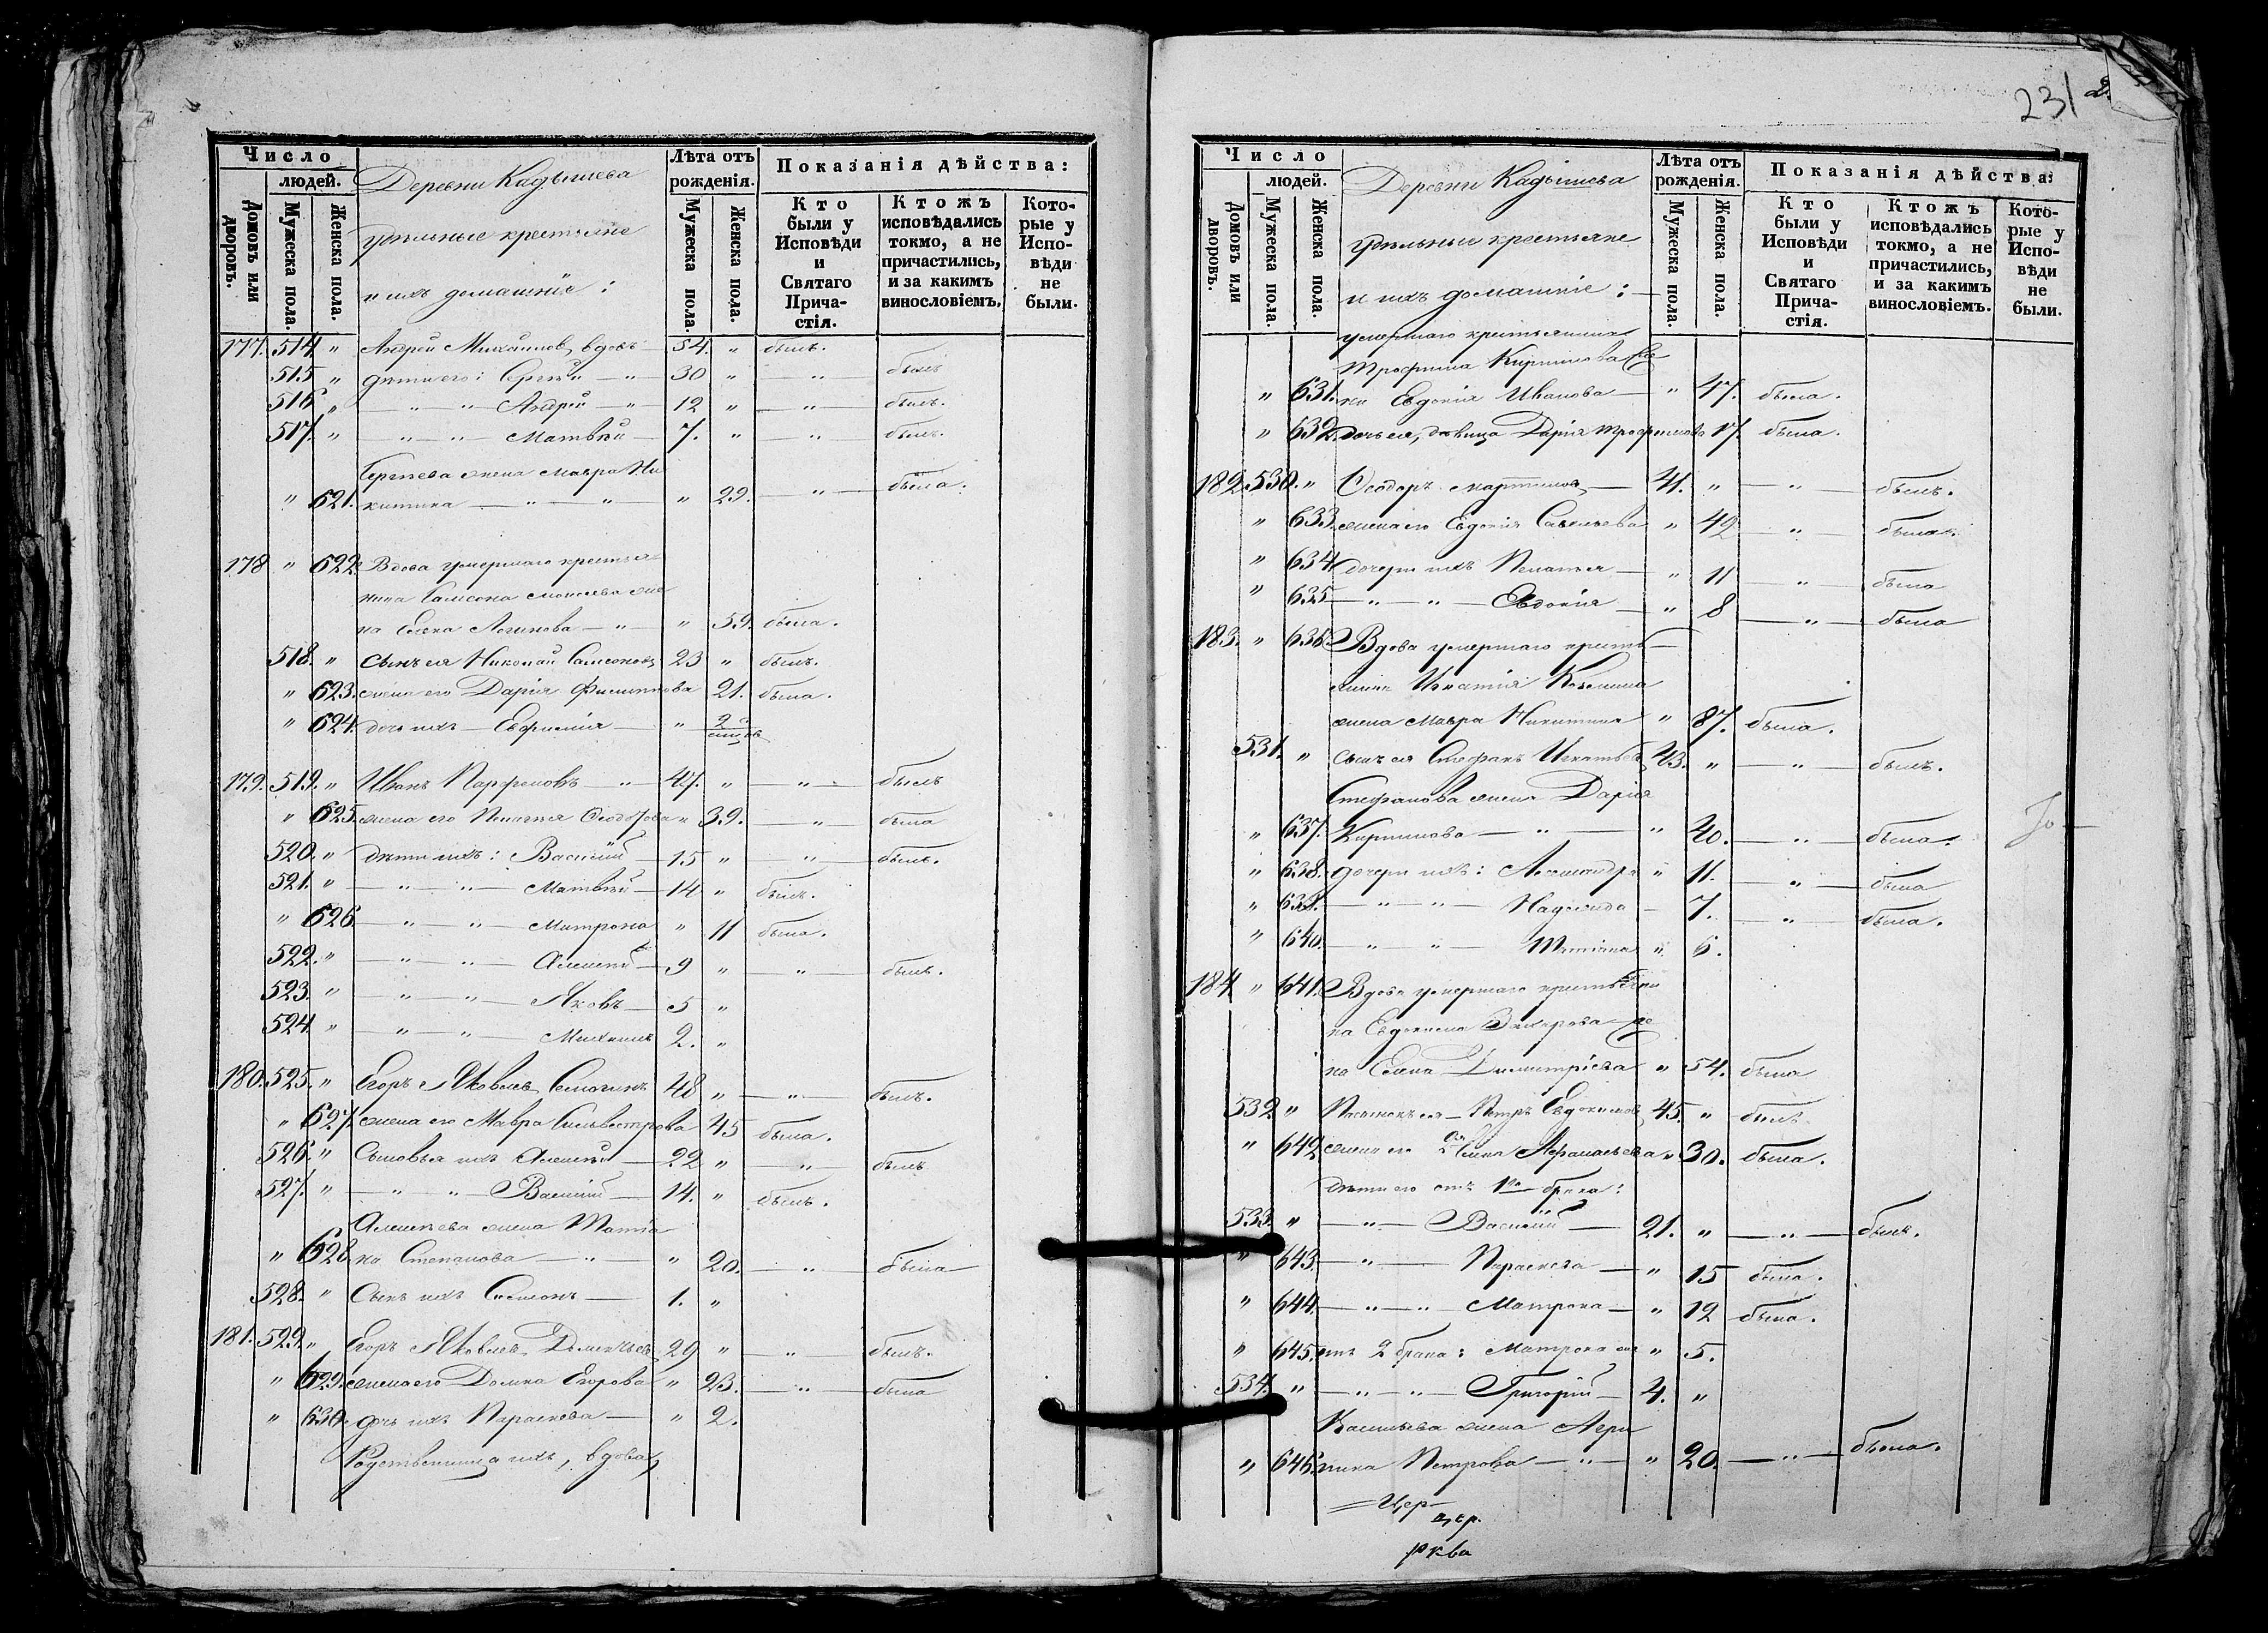 Число
людей.
Домовъ или дворовъ.
Мужеска пола.
Женска пола.
Деревни Кадышева
удѣльные крестьяне
и ихъ домашніе:
Лѣта отъ рожденія.
Мужеска пола.
Женска пола.
Показанія дѣйства:
Кто были у Исповѣди и Святаго Причастія.
Ктожъ исповѣдались токмо, а не причастились, и за какимъ винословіемъ.
Которые у Исповѣди не были.
177. 514 " Андрей Михайловъ, вдовъ 54. " былъ.
515 " дѣти его: Сергѣй — " — 30 " — " — былъ
516 " — " — " — Андрей — " 12 " — " — былъ.
517. " — " — " — Матвѣй — 7. " — " — былъ.
Сергѣева жена Мавра Ни
" 621. китина — " — " — " 29. — " — была.
178 " 622. Вдова умершаго крестья-
нина Самсона Моисеева же
на Елена Логинова — " — " 59. была.
518. " сынъ ея Николай Самсоновъ 23 " былъ.
" 623. жена его Дарія Филиппова 21. была.
" 624. дочь ихъ — Евфимія — " 2
179. 519. " Иванъ Парфеновъ — " — 47. " — " — былъ
" 625. жена его Пелагея Ѳеодорова " 39. — " — была
520. " дѣти ихъ: Василій — 15 " — " — былъ.
521. " — " — " — Матвѣй — 14 " былъ.
" 626 — " — " — Матрона " 11 была.
522. " — " — " — Алексѣй — 9 " — " — былъ.
523. " — " — " — Яковъ — 5 "
524 " — " — " — Михаилъ 2. "
180. 525. " Егоръ Яковлевъ 48 " — " — былъ.
" 627. жена его Мавра Сильвестрова 45 была.
526. " Сыновья ихъ Алексѣй — 22 " — " — былъ
527. " — " — " — Василій — 14. " былъ.
Алексѣева жена Татіа
" 628 на Степанова — " — " 20. — " — была
528. " Сынъ ихъ Симеонъ — 1. "
181. 529. " Егоръ Яковлевъ 29 " — " — былъ.
" 629. жена его Домна Егорова " 23. — " — была
" 630. дочь ихъ Параскева — " 2.
Родственница ихъ, вдова
231
Число
людей.
Домовъ или дворовъ.
Мужеска пола.
Женска пола.
Деревни Кадышева
удѣльные крестьяне
и ихъ домашніе:
Лѣта отъ рожденія.
Мужеска пола.
Женска пола.
Показанія дѣйства:
Кто были у Исповѣди и Святаго Причастія.
Ктожъ исповѣдались токмо, а не причастились, и за какимъ винословіемъ.
Которые у Исповѣди не были.
умершаго крестьянина
Трофима Кирилова же
" 631. на Евдокія Иванова — " 47. была.
" 632. дочь ея, дѣвица Дарія Трофимова 17. была.
182. 530. " Ѳеодоръ Мартиновъ — 41. " — " — былъ.
" 633. жена его Евдокія Савельева " 42 — " — была.
" 634 дочери ихъ Пелагея — " 11 — " — была
" 635 — " — " — Евдокія — " 8 — " — была
183. " 636. Вдова умершаго кресть-
янина Игнатія Козмина
жена Мавра Никитина " 87. была.
531. " сынъ ея Стефанъ Игнатьевъ 43. " — " — былъ.
Стефанова жена Дарія
" 637. Кирилова — " — " 40. — " — была.
" 638. дочери ихъ: Александра " 11. — " — была
" 639. — " — " — Надежда — 7. — " — была.
" 640. — " — " — Татіана " 6.
184 " 641. Вдова умершаго крестьяни
на Евдокима Захарова же
на Елена Димитріева " 54. была
532 " Пасынокъ ея — Петръ Евдокимовъ 45. " былъ.
" 642 жена его 2я Анна Афанасьева " 30. была.
дѣти его отъ 1го брака:
533. " — " — Василій — 21. " — " — былъ.
" 643. — " — Параскева — " 15 была.
" 644. — " — " — Матрона — " 12 была.
" 645. отъ 2 брака: Матрона " 5.
534. " — " — " — Григорій — 4. "
Васильева жена Агри
" 646. пина Петрова — " — " 20. — " — была.
Цер-
цер.
рква